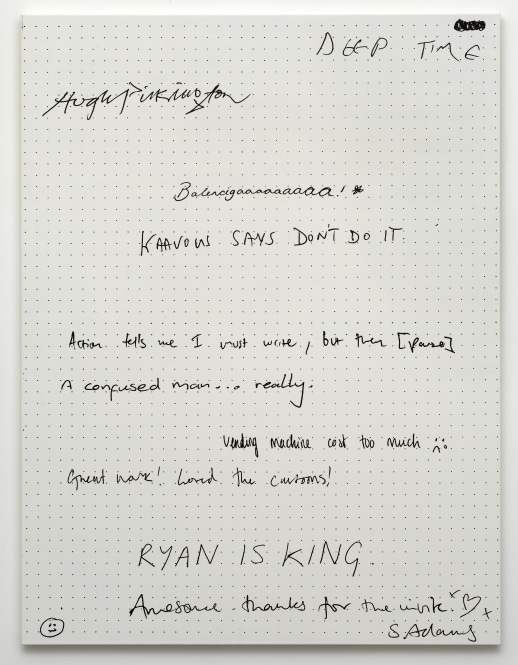 DEEP TIME
Hugh Pilkington
Balenciagaaaaaaaaa! *
KAAVOUS SAYS DON'T DO IT
Action tells me I must write, but then [pause]
A confused man... really.
Vending machine cost too much
Great work! Loved the cartoons!
RYAN IS KING.
Awesome thanks for the invite! x
S. Adams